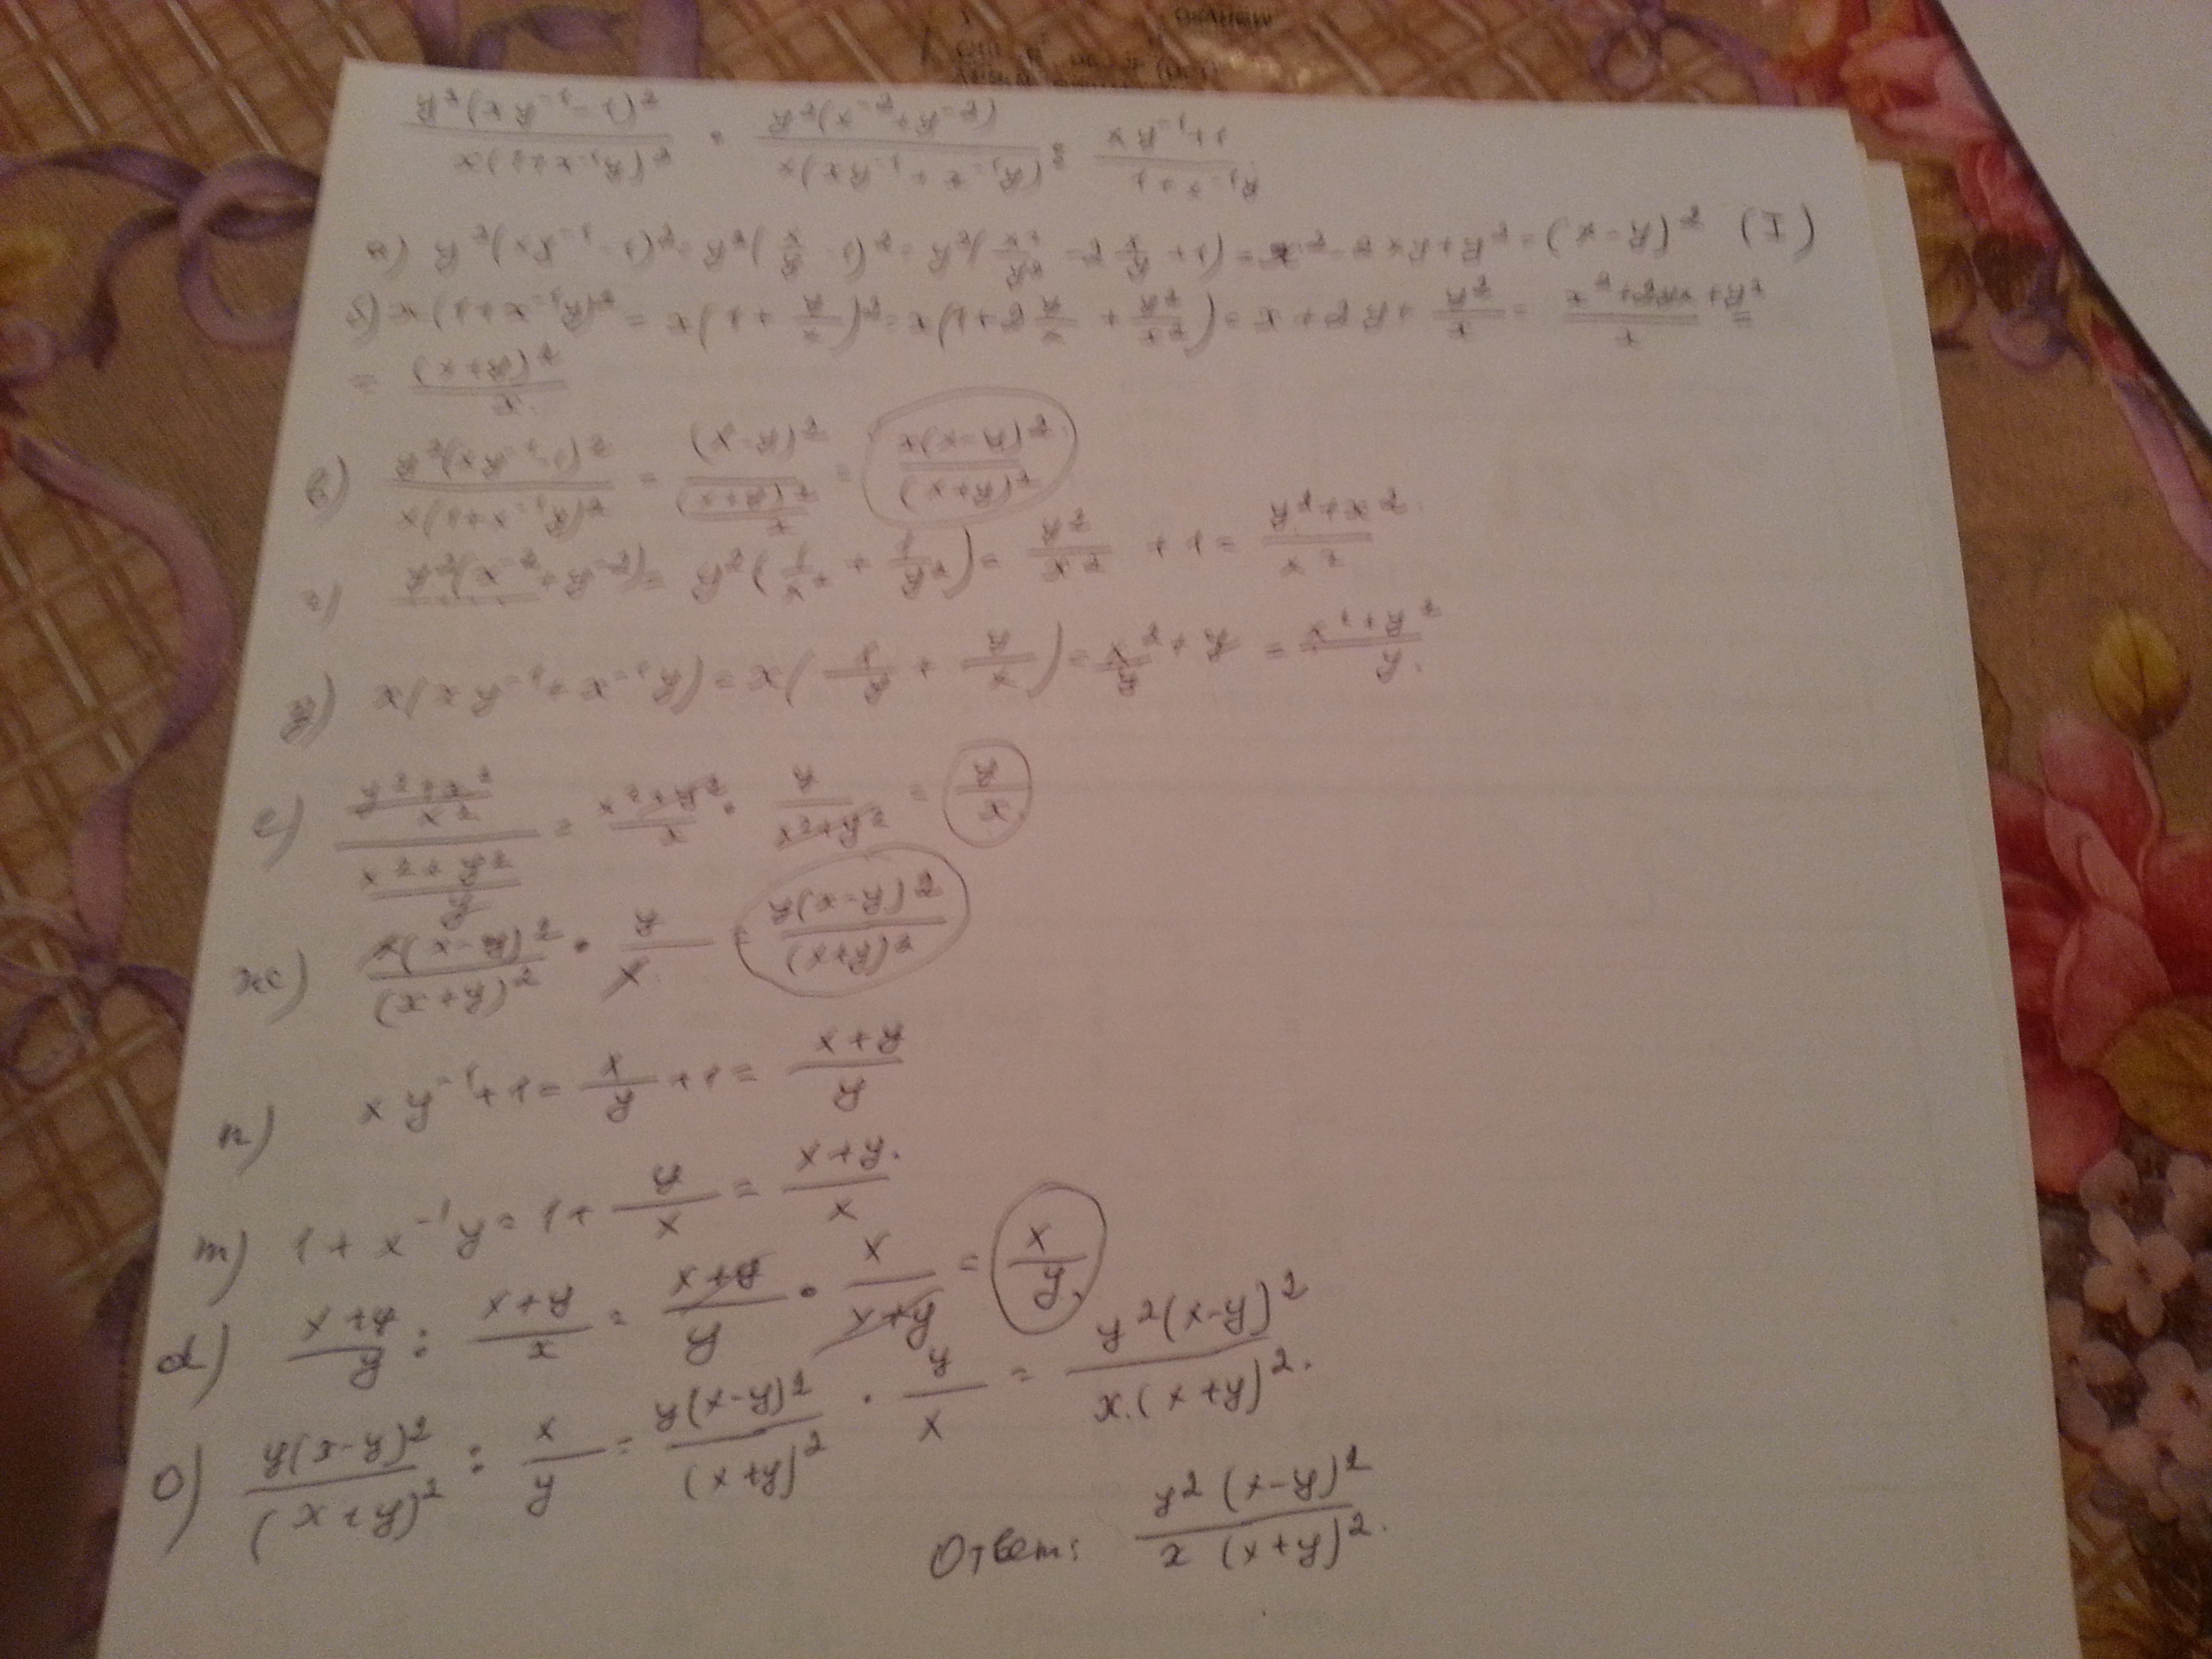 y²(xy⁻¹-1)² / x(1+x⁻¹y)² · y²(x⁻²+y⁻²) / x(xy⁻¹+x⁻¹y) : xy⁻¹+1 / 1+x⁻¹y
а) y²(xy⁻¹-1)²=y²(x/y-1)²=y²(x²/y²-2x/y+1)=x²-2xy+y²=(x-y)² (I)
б) x(1+x⁻¹y)²=x(1+y/x)²=x(1+2y/x+y²/x²)=x+2y+y²/x=x²+2xy+y²/x=
= (x+y)²/x
в) y²(xy⁻¹-1)²/x(1+x⁻¹y)² = (x-y)²/(x+y)²/x = x(x-y)²/(x+y)²
г) y²(x⁻²+y⁻²)=y²(1/x²+1/y²)=y²/x²+1=y²+x²/x²
x²/y+y=x²+y²/y
е) y²+x²/x² / x²+y²/y = x²+y²/x · y/x²+y² = y/x
ж) x(x-y)²/(x+y)² · y/x = y(x-y)²/(x+y)²
n) xy⁻¹+1=x/y+1=x+y/y
m) 1+x⁻¹y=1+y/x=x+y/x
d) x+y/y : x+y/x = x+y/y · x/x+y = x/y
o) y(x-y)²/(x+y)² : x/y = y(x-y)²/(x+y)² · y/x = y²(x-y)²/x·(x+y)².
Ответ: y²(x-y)²/x(x+y)².